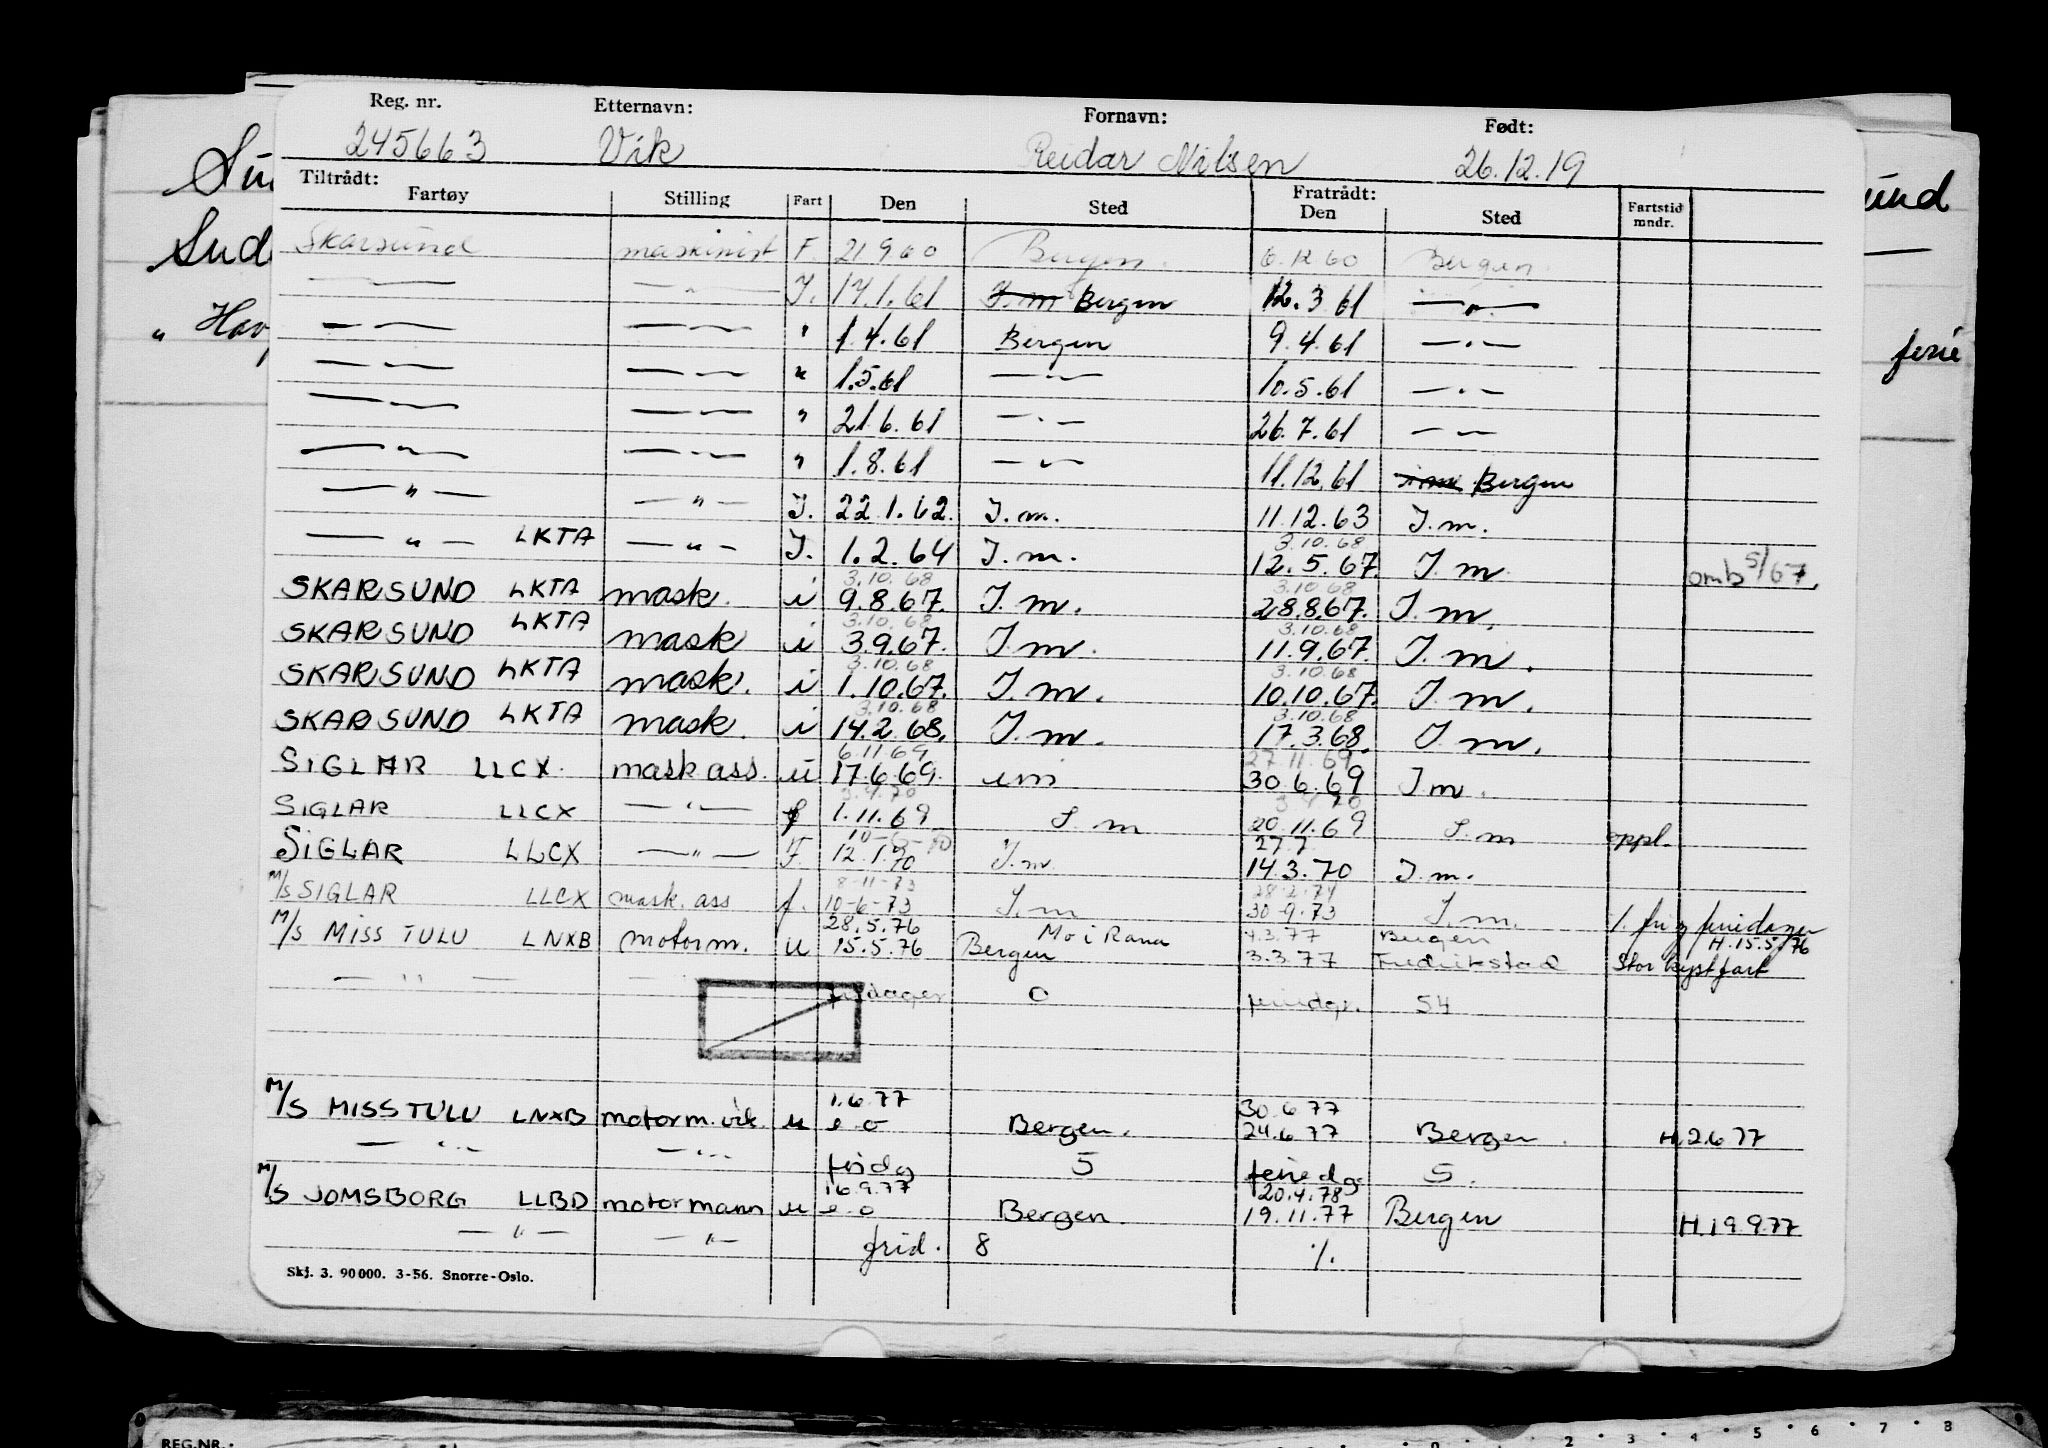 Reg. nr. Etternavn: Fornavn: Født:
245663 Vik Reidar Nilsen 26.12.19
Tiltrådt: Fratrådt:
Fartøy Stilling Fart Den Sted Den Sted Fartstid mndr.
Skarsund maskinist F. 21 9 60 Bergen. 6.12.60 Bergen
—— —"— I. 17.1.61 Bergen 12.3 61 —"—
—"— —"— " 1.4.61 Bergen 9.4.61 —"—
—"— —"— " 1.5.61 —"— 10.5.61 —"—
—"— —"— " 21.6.61 —"— 26.7.61 —"—
—"— —"— " 1.8.61 —"— 11.12.61 Bergen
—"— —"— I. 22.1.62. I.m. 11.12.63 I.m.
3.10.68
—"— LKTA —"— I. 1.2.64 I.m. 12.5.67. I.m omb 5/67.
3.10.68 3.10.68
SKARSUND LKTA mask. i 9.8.67. I.m. 28.8.67. I.m.
3.10.68 3.10.68
SKARSUND LKTA mask i 3.9.67. I.m. 11.9.67. I.m.
3.10.68 3.10.68
SKARSUND LKTA mask. i 1.10.67. I.m. 10.10.67. I.m.
3.10.68 3.10.68
SKARSUND LKTA mask. i 14.2.68. I.m. 17.3.68. I.m.
6.11.69 27.11.69
SIGLAR LLCX. mask ass. u 17.6.69. im 30.6.69 Im.
3.4.70 3.4.70
SIGLAR LLCX —"— f 1.11.69 I.m 20.11.69 I.m oppl.
27.7
SIGLAR LLCX —"— F. 12.1.70 I.m. 14.3.70 I.m.
8-11-73 28.2.74
M/S SIGLAR LLCX mask. ass f. 10-6-73 I.m 30-9.73 I.m. 1. fri og feriedager
28.5.76 Mo i Rana 4.3.77 Bergen H.15.5/76
M/S MISS TULU LNXB motorm. u 15.5.76 Bergen 3.3.77 Fredrikstad Stor kystfart
—"— fridager 0 feriedgr. 54
1.6.77 30.6.77
M/S MISS TULU LNXB motorm. vik. u e.o Bergen. 24.6.77 Bergen. H.2.6 77
—"— —"— fridg 5 feriedg 5.
16.9.77 20.4.78
M/S JOMSBORG LLBD motormann u e.o Bergen. 19.11.77 Bergen H.19.9.77
—"— —"— frid. 8 ./.
Skj. 3. 90000. 3-56. Snorre-Oslo.
ferie
REG.NR.:
2 3 4 5 6 7 8